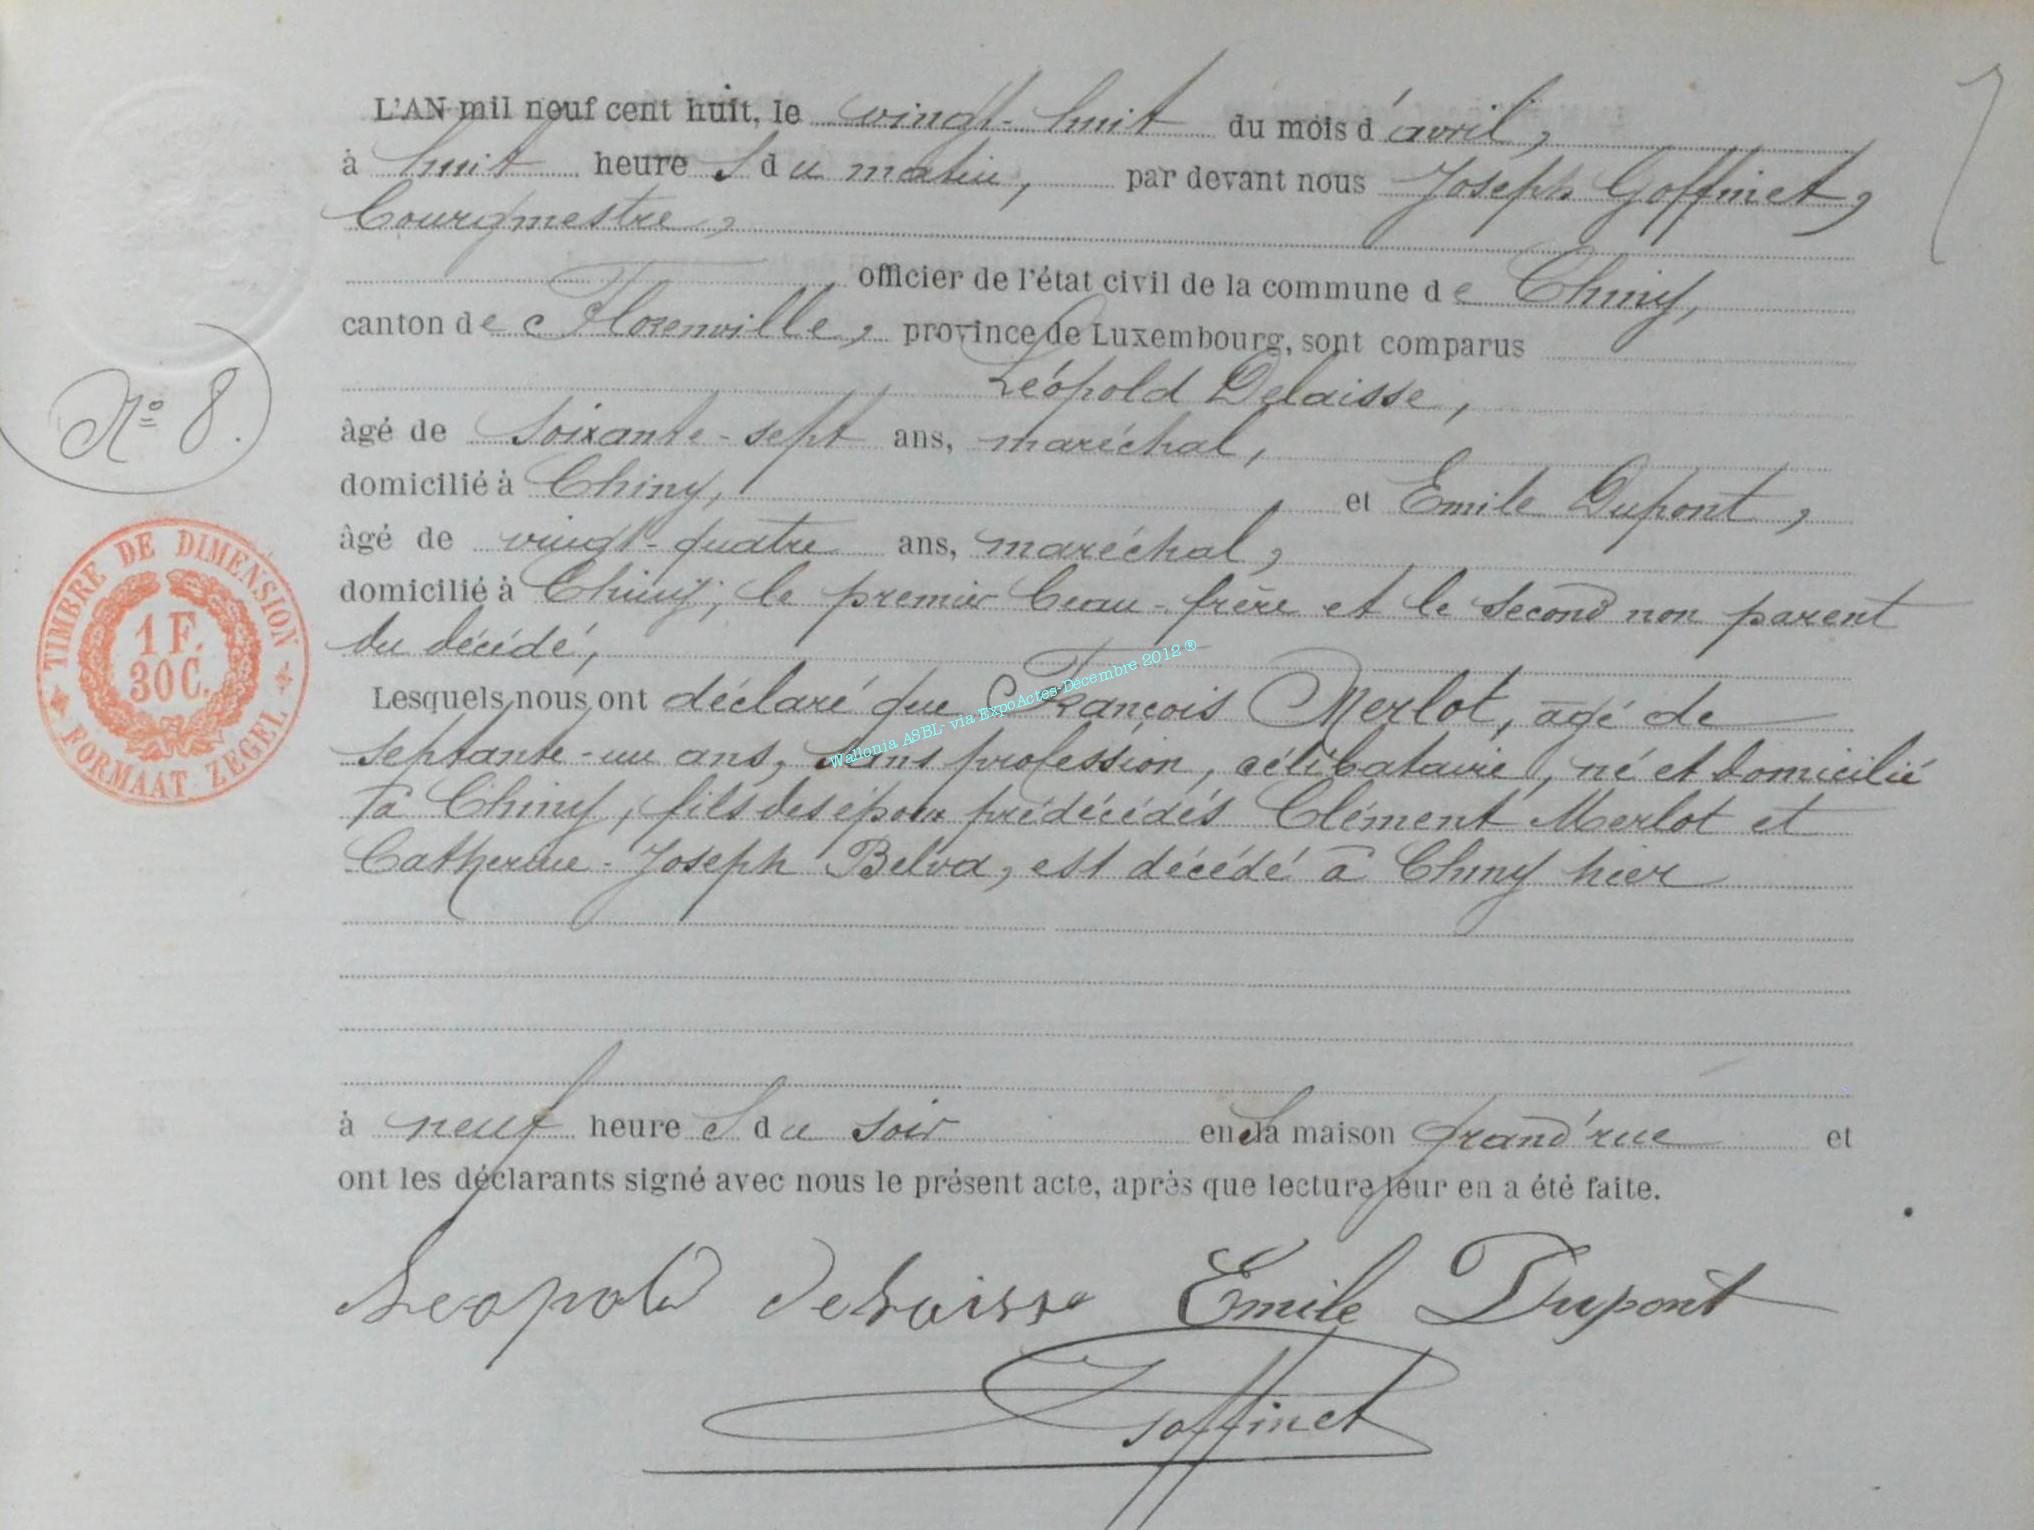 L'AN mil neuf cent huit, le vingt-huit du mois d'avril,
à huit heures du matin, par devant nous Joseph Goffinet,
bourgmestre,
officier de l'état civil de la commune de Chiny,
canton de Florenville, province de Luxembourg, sont comparus
Léopold Delaisse,
N° 8.
âgé de soixante-sept ans, maréchal,
domicilié à Chiny, et Emile Dupont,
âgé de vingt-quatre ans, maréchal,
domicilié à Chiny, le premier beau-frère et le second non parent
du décédé,
TIMBRE DE DIMENSION
1 F.
30 C.
FORMAAT ZEGEL
Lesquels nous ont déclaré que François Merlot, agé de
septante-un ans, sans profession, célibataire, né et domicilié
à Chiny, fils des époux prédécédés Clément Merlot et
Catherine-Joseph Belva, est décédé à Chiny hier
Wallonia ASBL- via ExpoActes-Décembre 2012 ®
à neuf heures du soir en sa maison grand'rue et
ont les déclarants signé avec nous le présent acte, après que lecture leur en a été faite.
Leopold delaisse Emile Dupont
J Goffinet